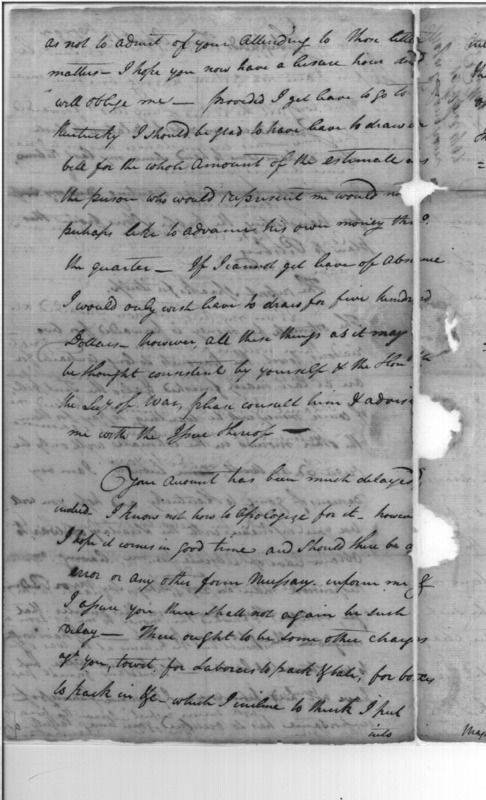 as not to admit of your attending to those little
matters - I hope you now have a leisure hour and
will oblige me - provided I get leave to go to
Kentucky I should be glad to have leave to draw a
bill for the whole amount of the estimate as
the person who would represent me would not
perhaps like to advance his own money thro.
the quarter - If I cannot get leave of Absence
I would only wish leave to draw for five hundred
Dollars - however all these things as it may
be thought consistent by yourself & the Hon.
the Secy of War, please consult him & advise
me with the Issue thereof -
Your amount has been much delayed
indeed. I know not how to Apologize for it - however
I hope it comes in good time and should there be a
error or any other form Necessary. inform me &
I assure you there shall not again be such
Delay - There ought to be some other charges
agt. you, towit for Laborers to pack & bale, for boxes
to pack in &c - which I incline to think I put
into